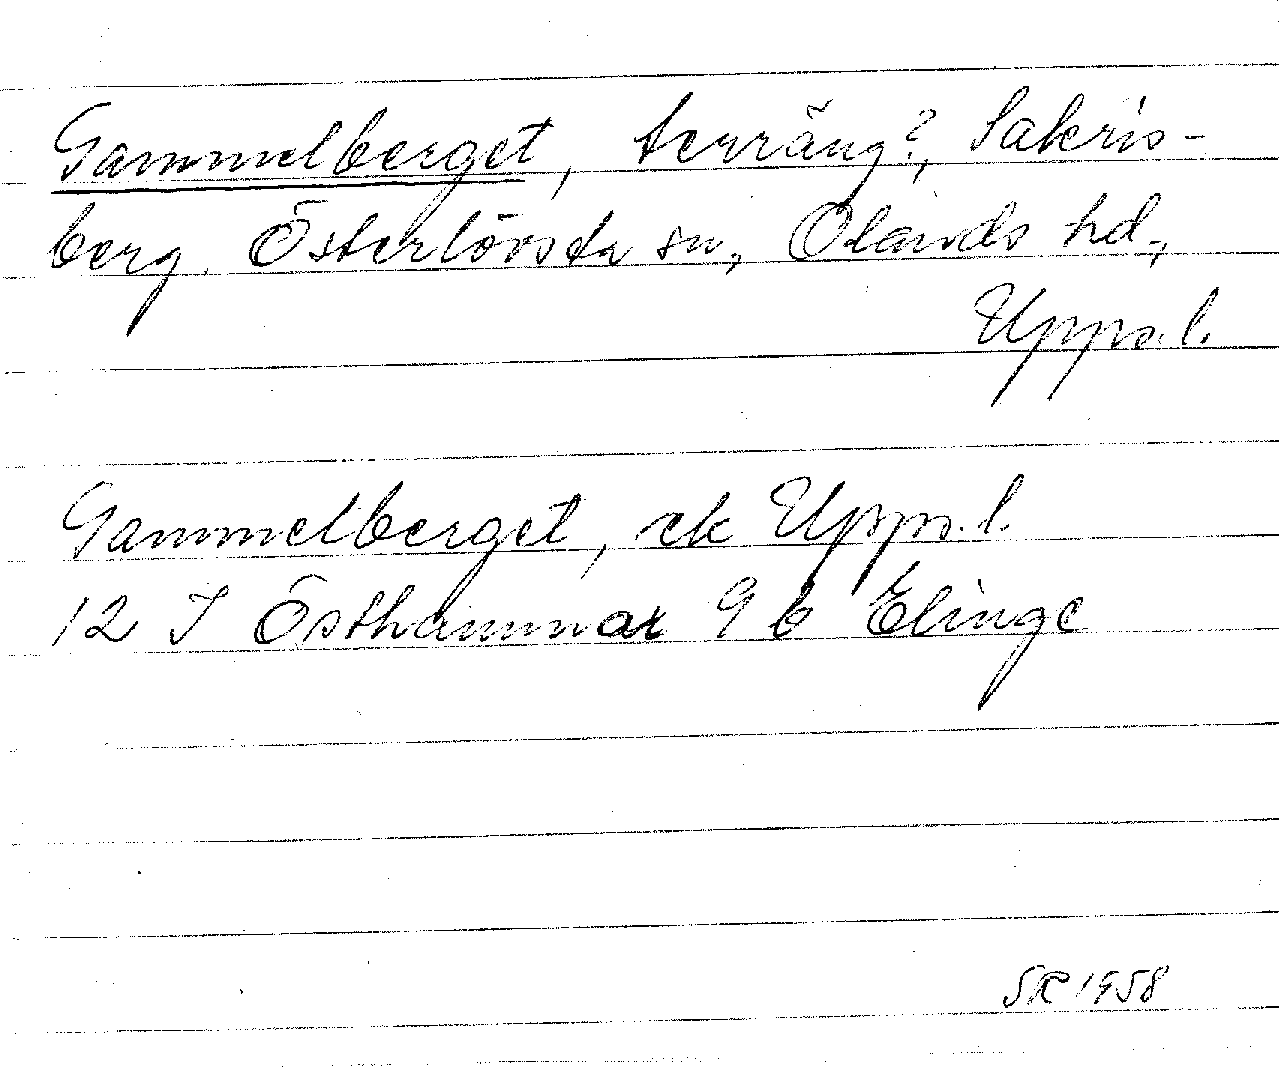 Gammelberget, terräng?, Sakris-
berg. Österlövsta sn, Olands hd.,
Upps.l.
Gammelberget, ek Upps.l.
12 I Östhammar 9 b Elinge
SR 1958